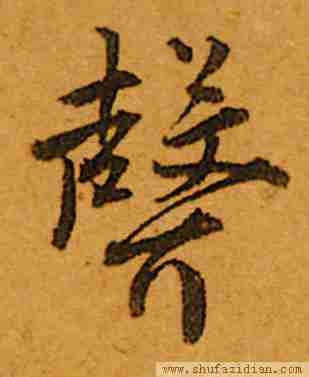 聲
www.shufazidian.com